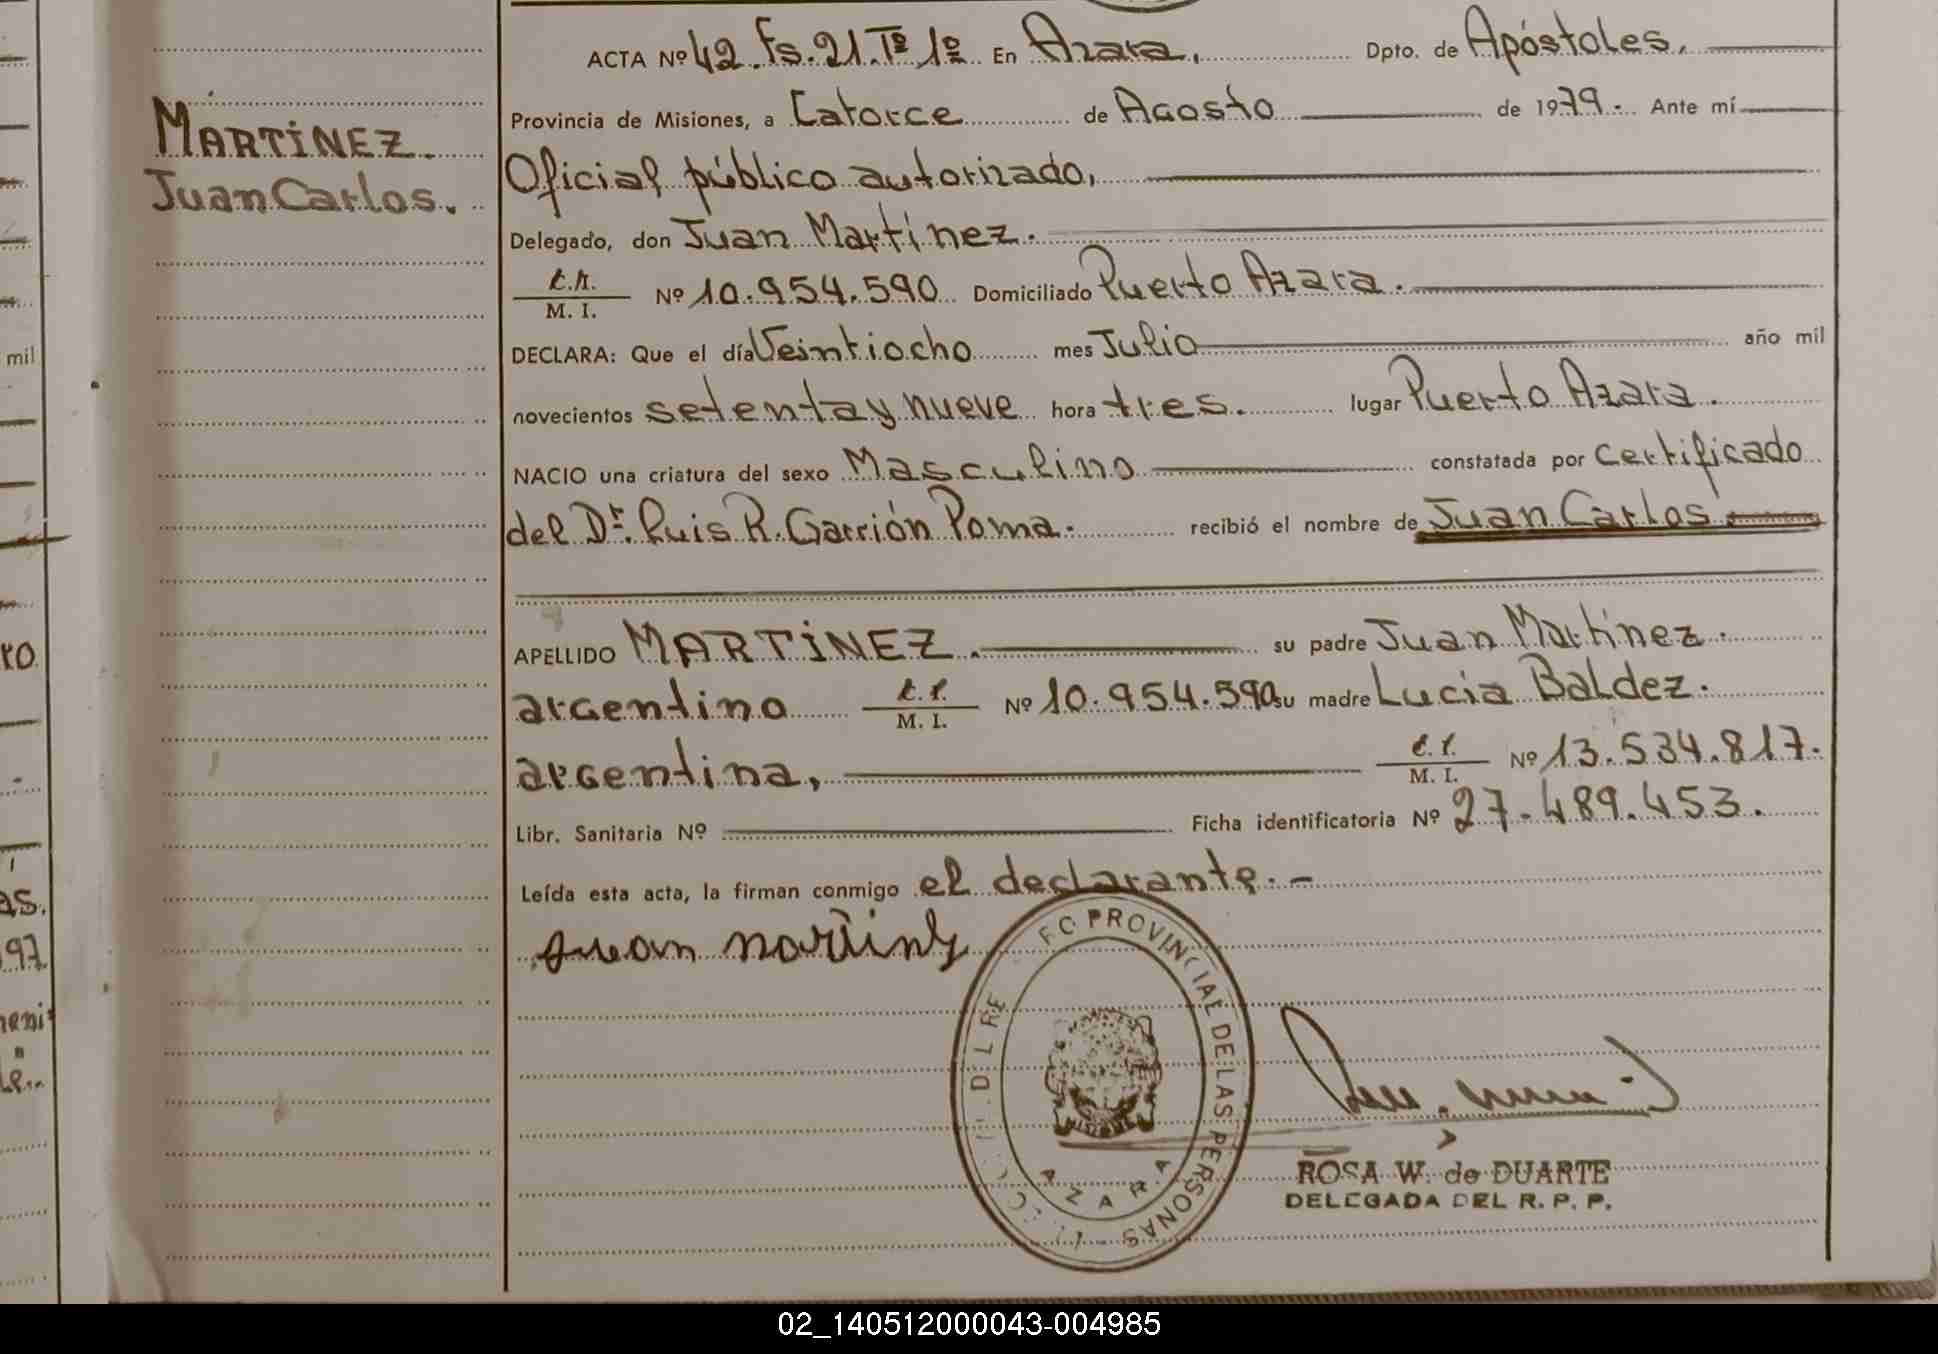 MARTÍNEZ.
Juan Carlos.
ACTA Nº 42. Fs. 21. Tº 1º En Azara, Dpto. de Apóstoles.
Provincia de Misiones, a Catorce de Agosto de 1979.- Ante mí
Oficial público autorizado,
Delegado, don Juan Martínez.
M. I. Nº 10.954.590 Domiciliado Puerto Azara.
DECLARA: Que el día Veintiocho mes Julio año mil
novecientos setenta y nueve hora tres. lugar Puerto Azara.
NACIO una criatura del sexo Masculino constatada por certificado
del Dr. Luis R. Garrión Poma. recibió el nombre de Juan Carlos
APELLIDO MARTÍNEZ. su padre Juan Martínez.
argentino M. I. Nº 10.954.590 su madre Lucia Baldez.
argentina, M. I. Nº 13.534.817.
Libr. Sanitaria Nº Ficha identificatoria Nº 27.489.453.
Leída esta acta, la firman conmigo el declarante.-
Juan Martinez
PROVINCIAL DE LAS PERSONAS
AZARA
MISIONES
ROSA W. de DUARTE
DELEGADA DEL R. P. P.
mil
ro
as.
97
02_140512000043-004985